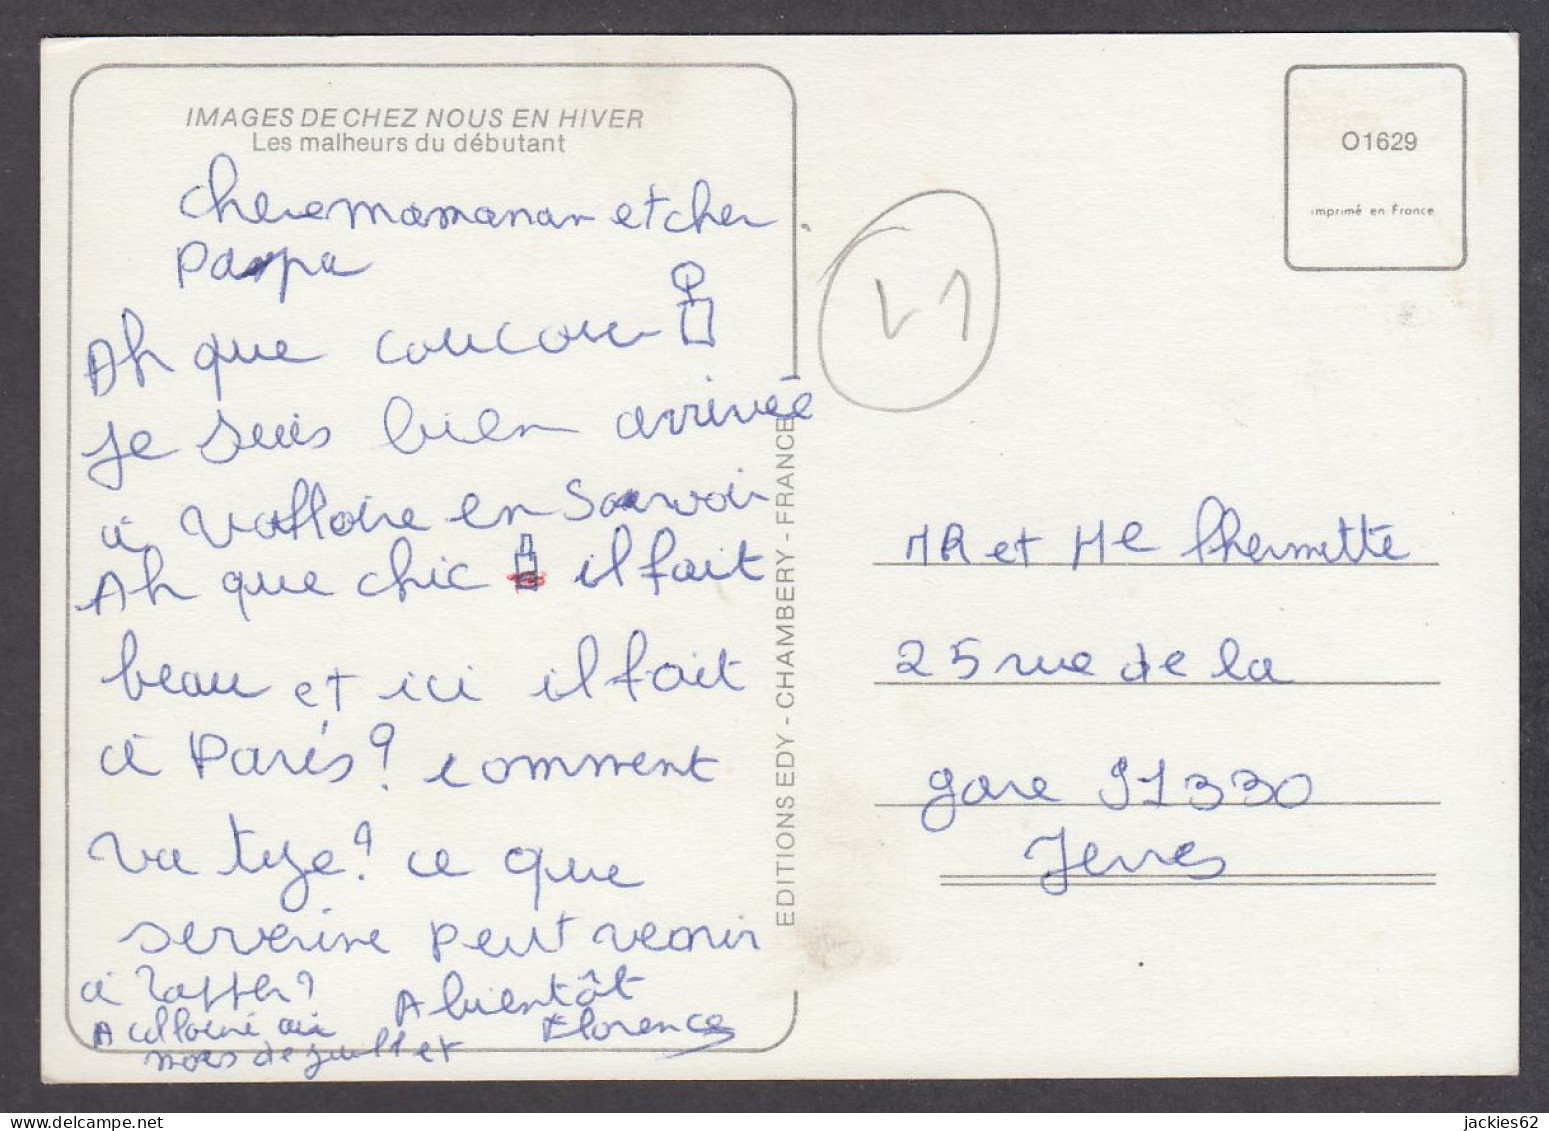 IMAGES DE CHEZ NOUS EN HIVER
Les malheurs du débutant
Chere mamanan et cher
Papa
Ah que coucou
Je suis bien arrivée
à Valloire en Savoir
Ah que chic il fait
beau et ici il fait
à Paris? comment
va tége? ce que
severine peut venir
à
A bientôt
Florence
A au
mois de juillet
EDITIONS EDY - CHAMBERY - FRANCE
O1629
imprimé en France
MR et Me Lhermette
25 rue de la
gare 91330
Jerres
jackies62